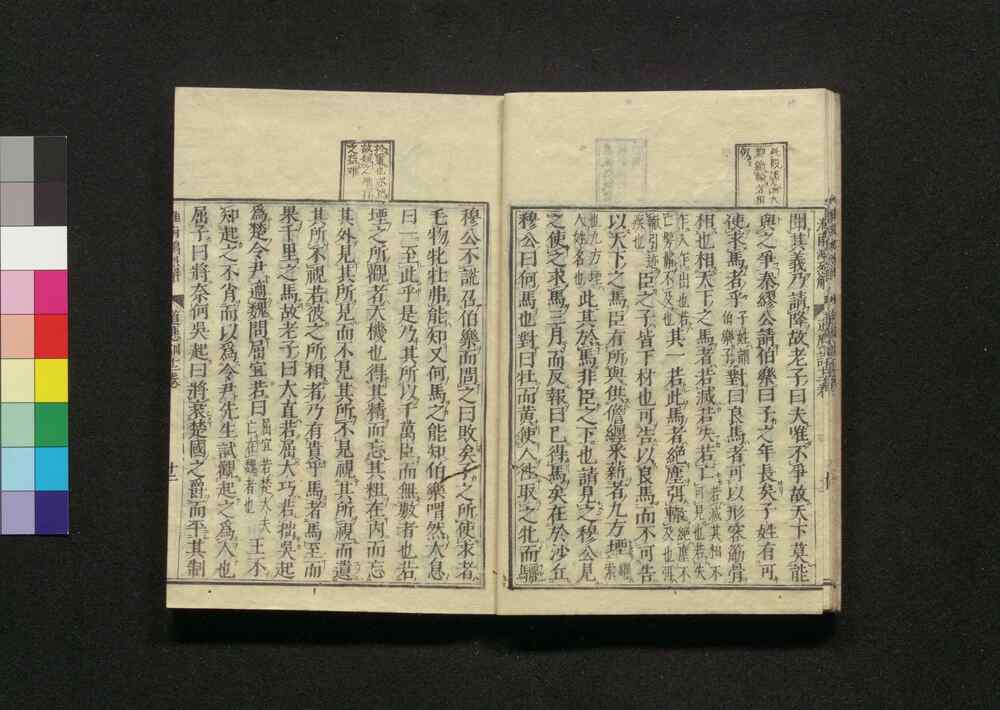 聞其義乃請降故老子曰夫唯不爭故天下莫能
與之爭秦繆公請伯樂曰子之年長矣子姓有可
使求馬者乎對曰良馬者可以形容筋骨
相也相天下之馬者若滅若失若亡
其一若此馬者絕塵弭轍
臣之子皆下材也可告以良馬而不可告
以天下之馬臣有所與供儋纆采薪者九方堙
此其於馬非臣之下也請見之穆公見
之使之求馬三月而反報曰已得馬矣在於沙丘
穆公曰何馬也對曰牡而黃使人往取之牝而驪
穆公不說召伯樂而問之曰敗矣子之所使求者
毛物牝牡弗能知又何馬之能知伯樂喟然大息
曰一至此乎是乃其所以千萬臣而無數者也若
堙之所觀者天機也得其精而忘其粗在內而忘
其外見其所見而不見其所不見視其所視而遺
其所不視若彼之所相者乃有貴乎馬者馬至而
果千里之馬故老子曰大直若屈大巧若拙吳起
爲楚令尹適魏問屈宜若曰屈宜若楚大夫亡在魏者也王不
知起之不肖而以爲令尹先生試觀起之爲人也
屈子曰將奈何吳起曰將衰楚國之爵而平其制